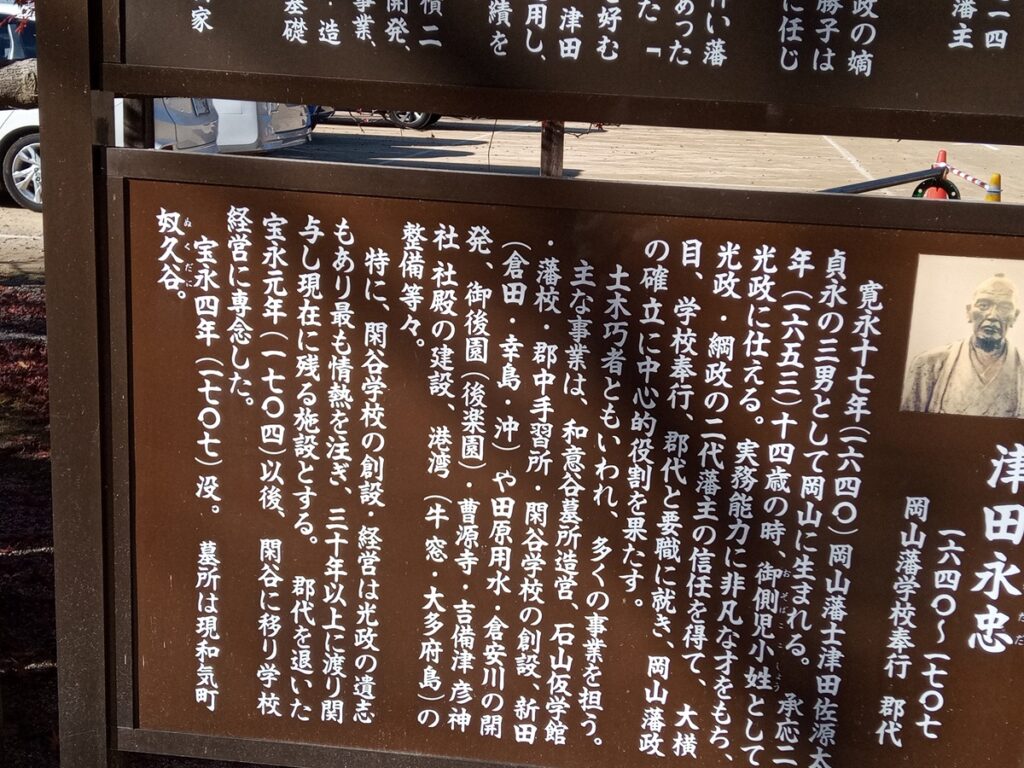 一四
藩主
政の嫡
勝子は
に任じ
伴い藩
あった
た「
を好む
津田
用し、
績を
積二
事業、
開発、
・造
基礎
家
津田永忠
ただ
(一六四〇~一七〇七
岡山藩学校奉行 郡代
寛永十七年(一六四〇)岡山藩士津田佐源太
貞永の三男として岡山に生まれる。承応二
年(一六五三)十四歳の時、御側児小姓として
おそばこごしょう
光政に仕える。実務能力に非凡な才をもち、
光政・綱政の二代藩主の信任を得て、大横
目、学校奉行、郡代と要職に就き、岡山藩政
の確立に中心的役割を果たす。
土木巧者ともいわれ、多くの事業を担う。
主な事業は、和意谷墓所造営、石山仮学館
・藩校・郡中手習所・閑谷学校の創設、新田
(倉田・幸島・沖)や田原用水・倉安川の開
発、御後園(後楽園)・曹源寺・吉備津彦神
社社殿の建設、港湾(牛窓・大多府島)の
整備等々。
特に、閑谷学校の創設・経営は光政の遺志
もあり最も情熱を注ぎ、三十年以上に渡り関
与し現在に残る施設とする。郡代を退いた
宝永元年(一七〇四)以後、閑谷に移り学校
経営に専念した。
宝永四年(一七〇七)没。墓所は現和気町
奴久谷。
ぬくだに